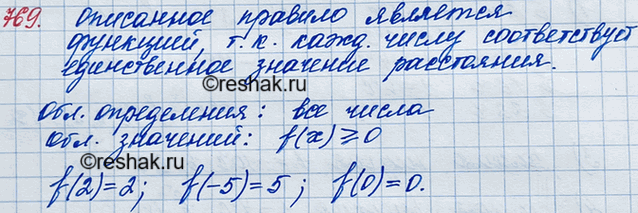 769. Описанное правило является
функцией, т.к. кажд. числу соответствует
единственное значение расстояния.
Обл. определения: все числа
Обл. значений: f(x) ⩾ 0
©reshak.ru
©reshak.ru
f(2)=2; f(-5)=5; f(0)=0.